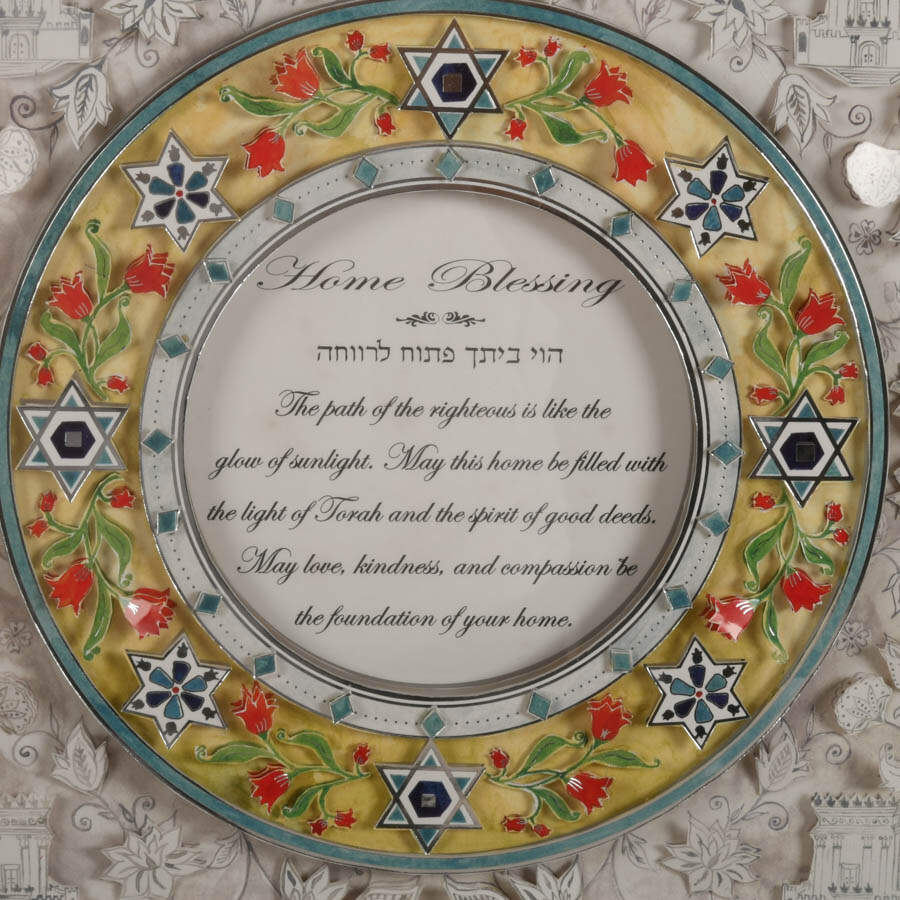 Home Blessing
הוי ביתך פתוח לרווחה
The path of the righteous is like the
glow of sunlight. May this home be filled with
the light of Torah and the spirit of good deeds.
May love, kindness, and compassion be
the foundation of your home.